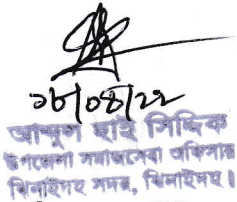 ০৮/০৪/২২
আব্দুল হাই সিদ্দিক
উপজেলা সমাজসেবা অফিসার
ঝিনাইদহ সদর, ঝিনাইদহ।